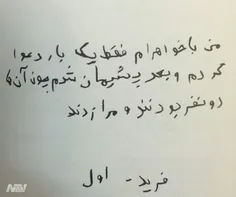 من با خواهرام فقط یک بار دعوا
کردم و بعد پشیمان شدم چون آن‌ها
دو نفر بودند و مرا زدند
فرید - اول